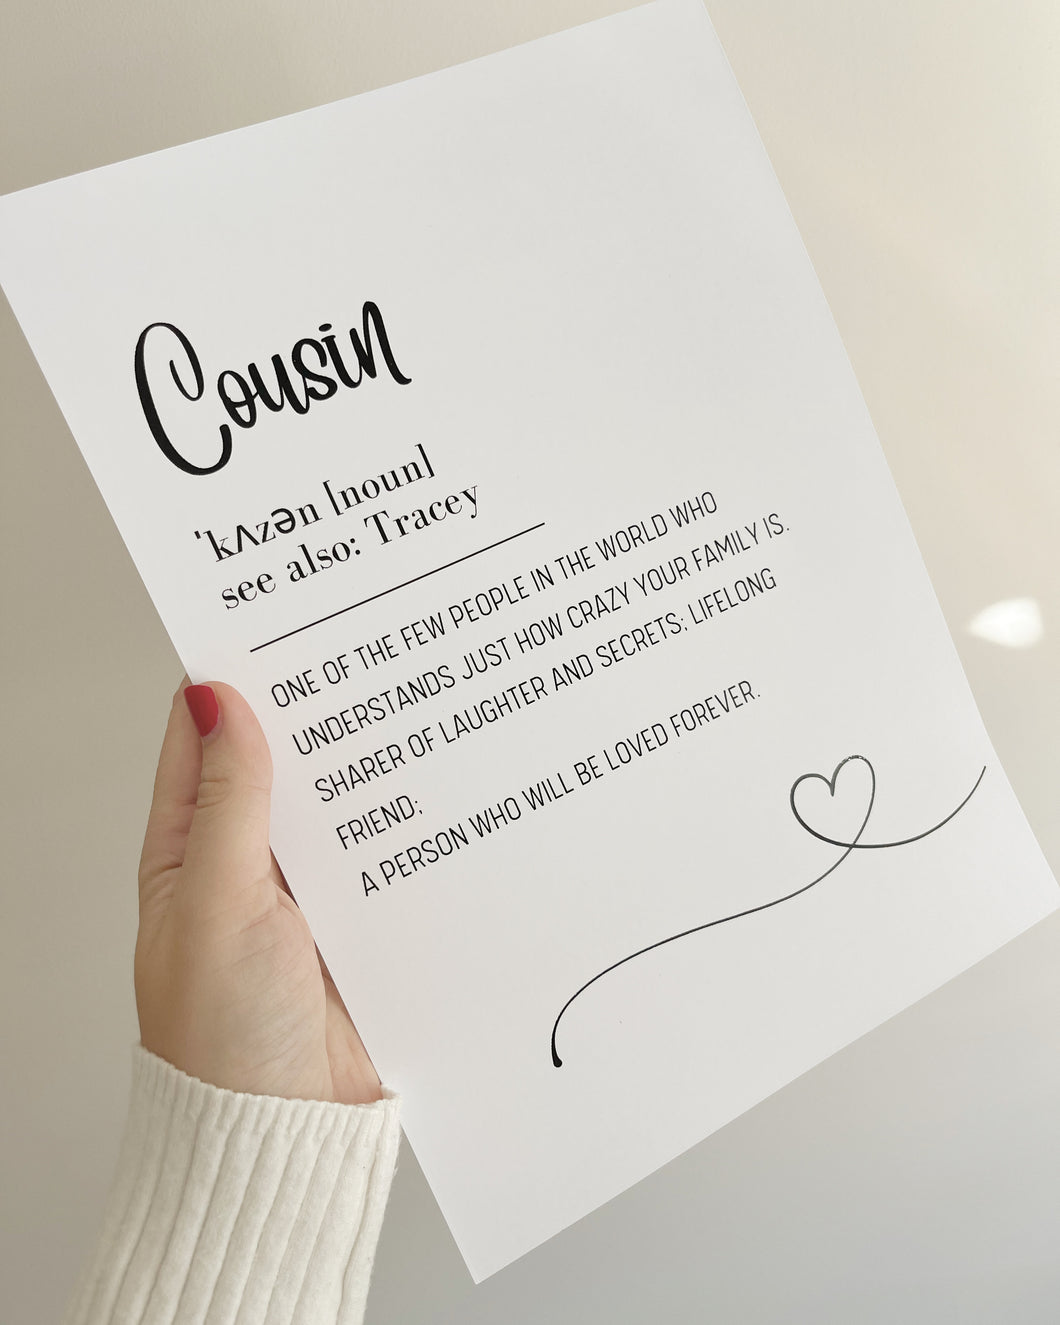 Cousin
ˈkʌzən [noun]
see also: Tracey
ONE OF THE FEW PEOPLE IN THE WORLD WHO
UNDERSTANDS JUST HOW CRAZY YOUR FAMILY IS.
SHARER OF LAUGHTER AND SECRETS; LIFELONG
FRIEND;
A PERSON WHO WILL BE LOVED FOREVER.